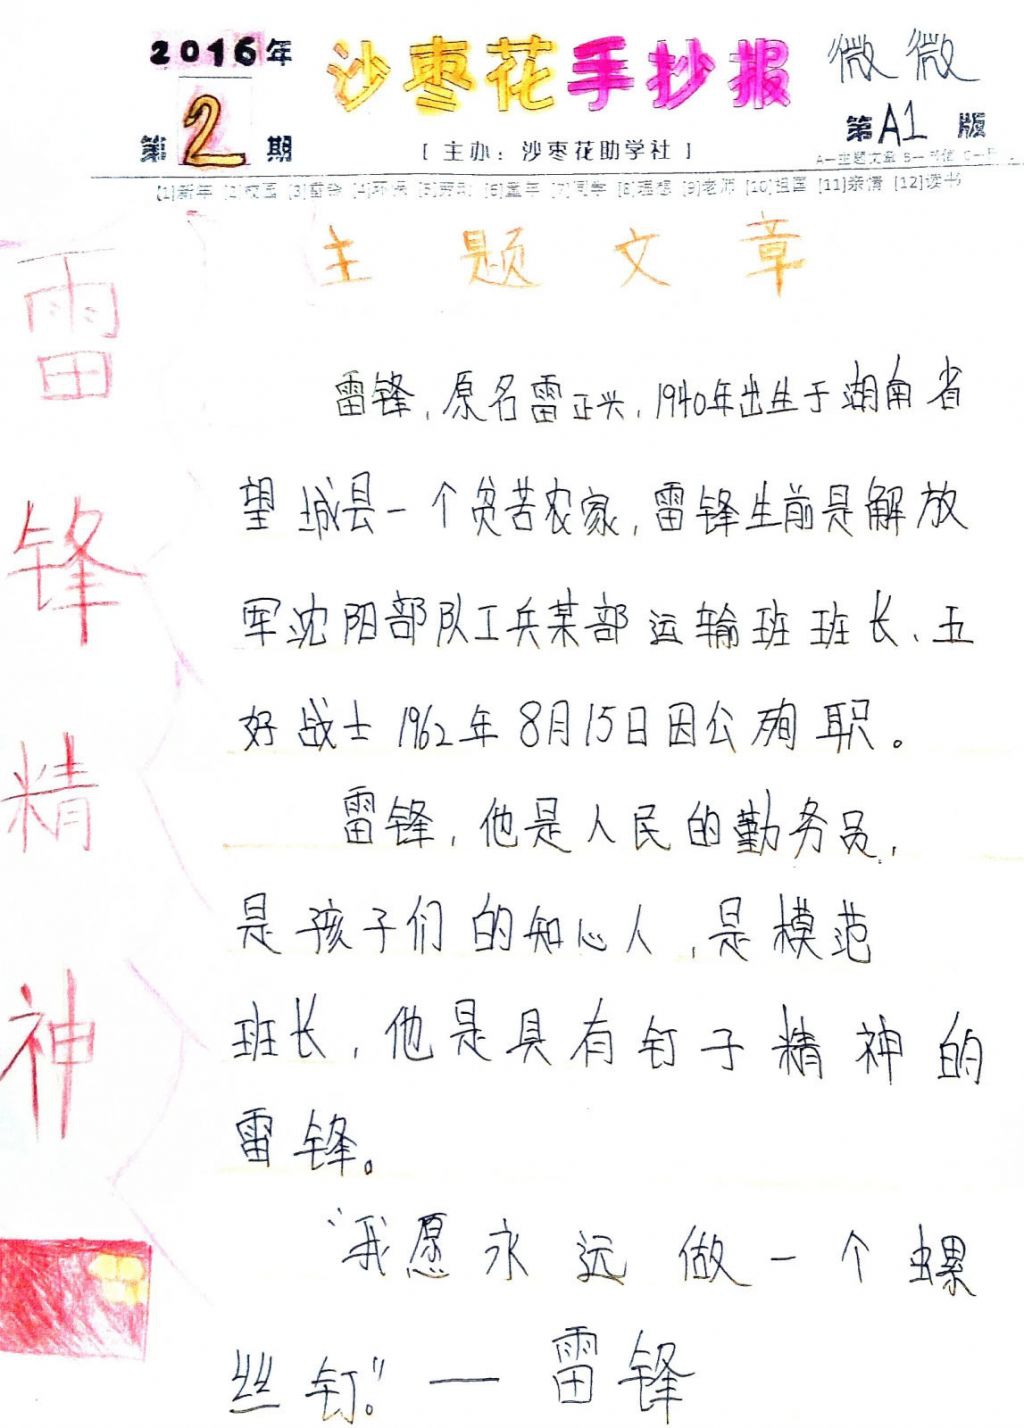 2016年
第2期
沙枣花手抄报
[ 主办: 沙枣花助学社 ]
微微
第A1版
[1]新年 [2]校园 [3]雷锋 [4]环保 [5]劳动 [6]童年 [7]同学 [8]理想 [9]老师 [10]祖国 [11]亲情 [12]读书
主题文章
雷锋精神
雷锋,原名雷正兴,1940年出生于湖南省
望城县一个贫苦农家,雷锋生前是解放
军沈阳部队工兵某部运输班班长、五
好战士1962年8月15日因公殉职。
雷锋,他是人民的勤务员,
是孩子们的知心人,是模范
班长,他是具有钉子精神的
雷锋。
“我愿永远做一个螺
丝钉。”—雷锋